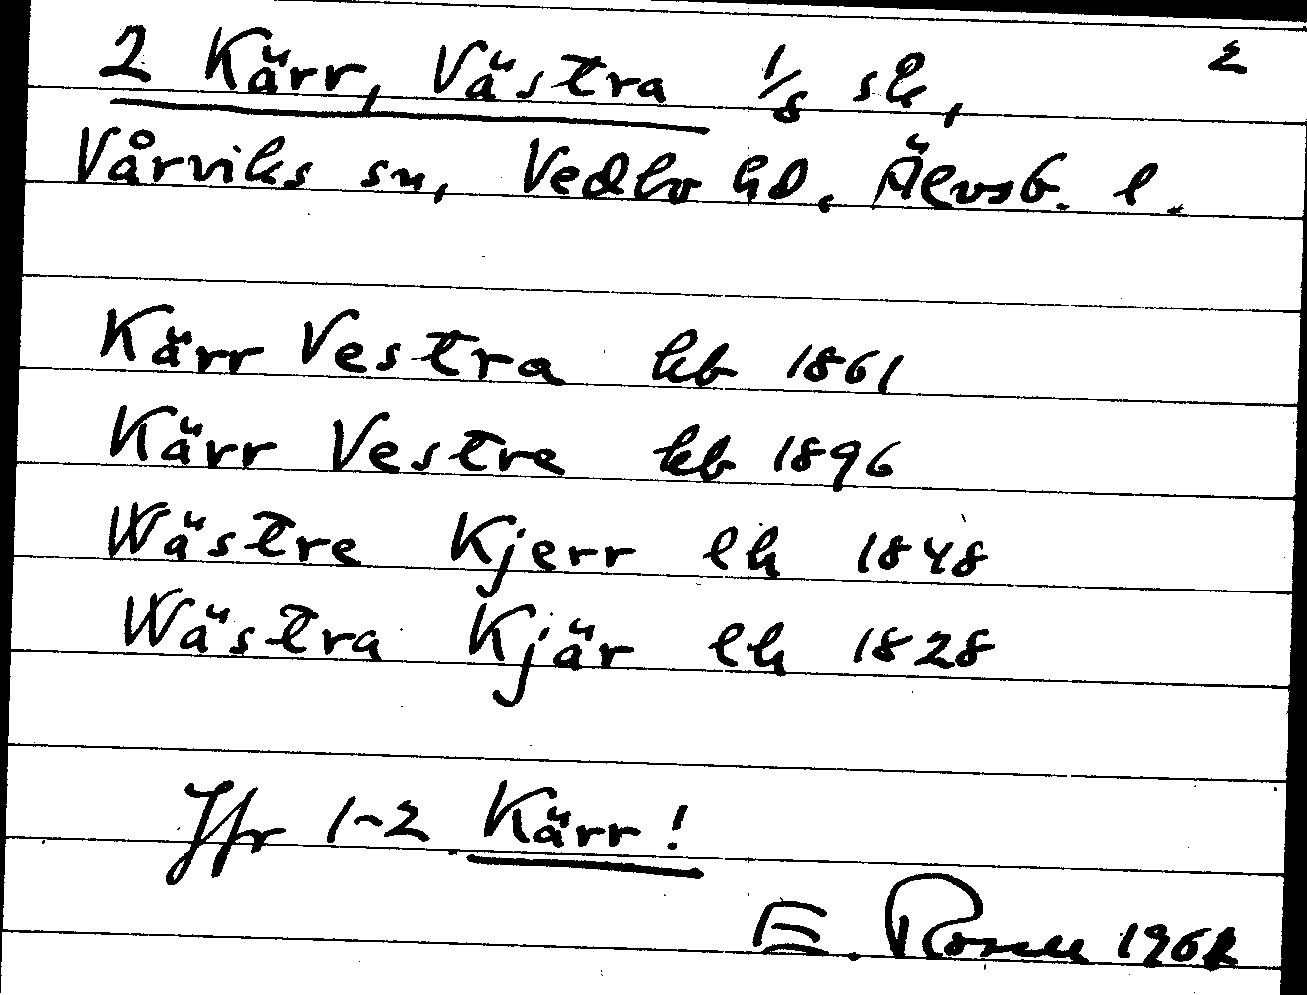 2 Kärr, Västra 1/8 sk, 2
Vårviks sn, Vedbo hd, Älvsb. l.
Kärr Vestra kb 1861
Kärr Vestre kb 1896
Wästre Kjerr lh 1848
Wästra Kjär lh 1828
Jfr 1-2 Kärr !
E. Rosell 1962